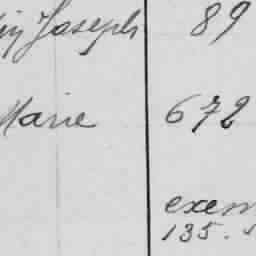 Joseph 89
Marie 672
exem
135.